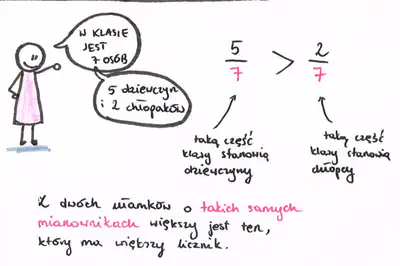 W KLASIE
JEST
7 OSÓB
5 dziewczyn
i 2 chłopaków
5/7 > 2/7
taką część
klasy stanowią
dziewczyny
taką część
klasy stanowią
chłopcy
Z dwóch ułamków o takich samych
mianownikach większy jest ten,
który ma większy licznik.